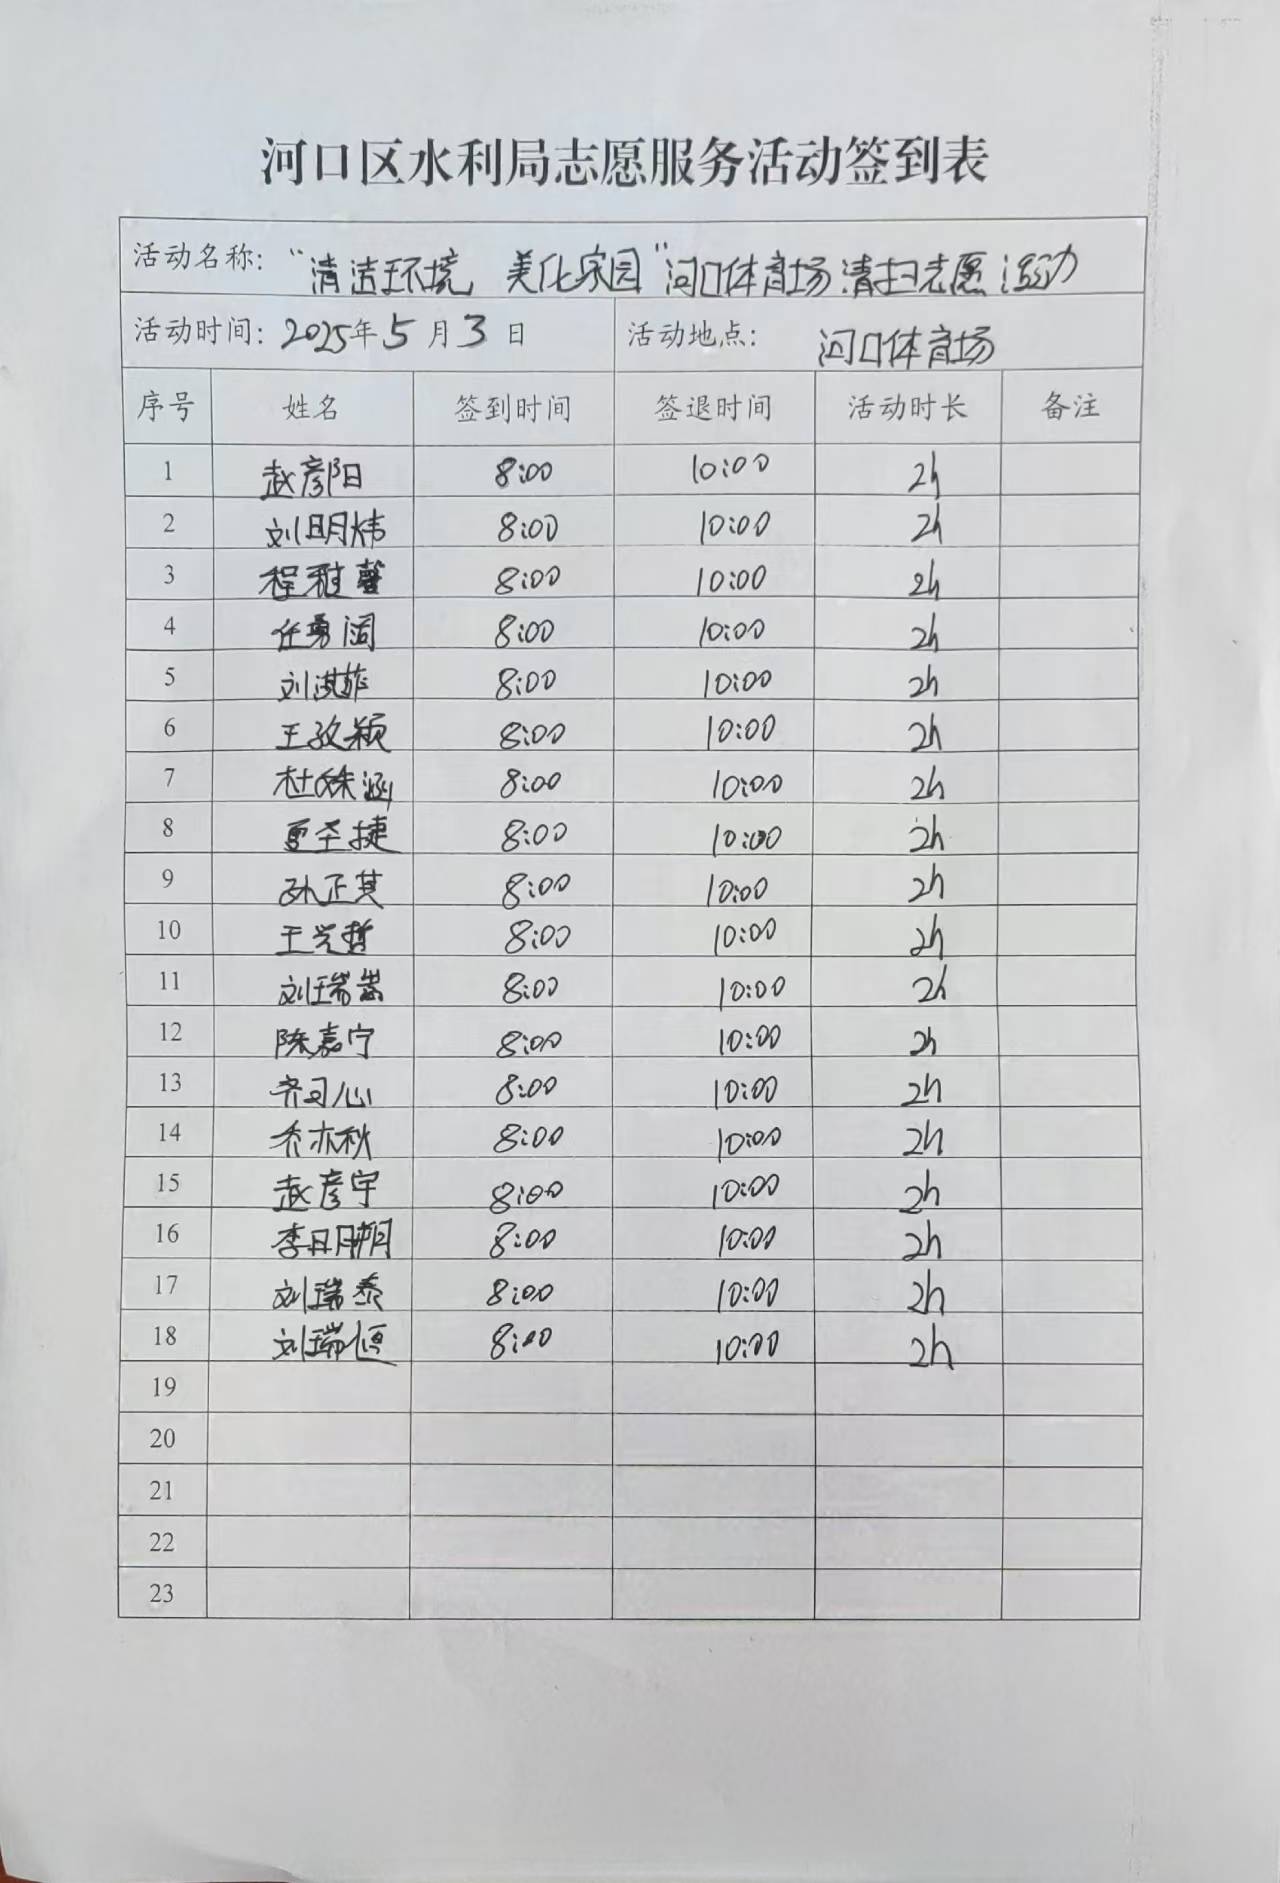 河口区水利局志愿服务活动签到表
活动名称：“清洁环境，美化家园”河口体育场清扫志愿活动
活动时间：2025年5月3日 活动地点：河口体育场
序号 姓名 签到时间 签退时间 活动时长 备注
1 赵彦阳 8:00 10:00 2h
2 刘明炜 8:00 10:00 2h
3 程雅馨 8:00 10:00 2h
4 任勇阔 8:00 10:00 2h
5 刘淇菲 8:00 10:00 2h
6 王孜颖 8:00 10:00 2h
7 杜姝涵 8:00 10:00 2h
8 圣捷 8:00 10:00 2h
9 孙正其 8:00 10:00 2h
10 王兴哲 8:00 10:00 2h
11 刘瑞嵩 8:00 10:00 2h
12 陈嘉宁 8:00 10:00 2h
13 齐司心 8:00 10:00 2h
14 乔亦秋 8:00 10:00 2h
15 赵彦宇 8:00 10:00 2h
16 李明朔 8:00 10:00 2h
17 刘瑞泰 8:00 10:00 2h
18 刘瑞恒 8:00 10:00 2h
19
20
21
22
23